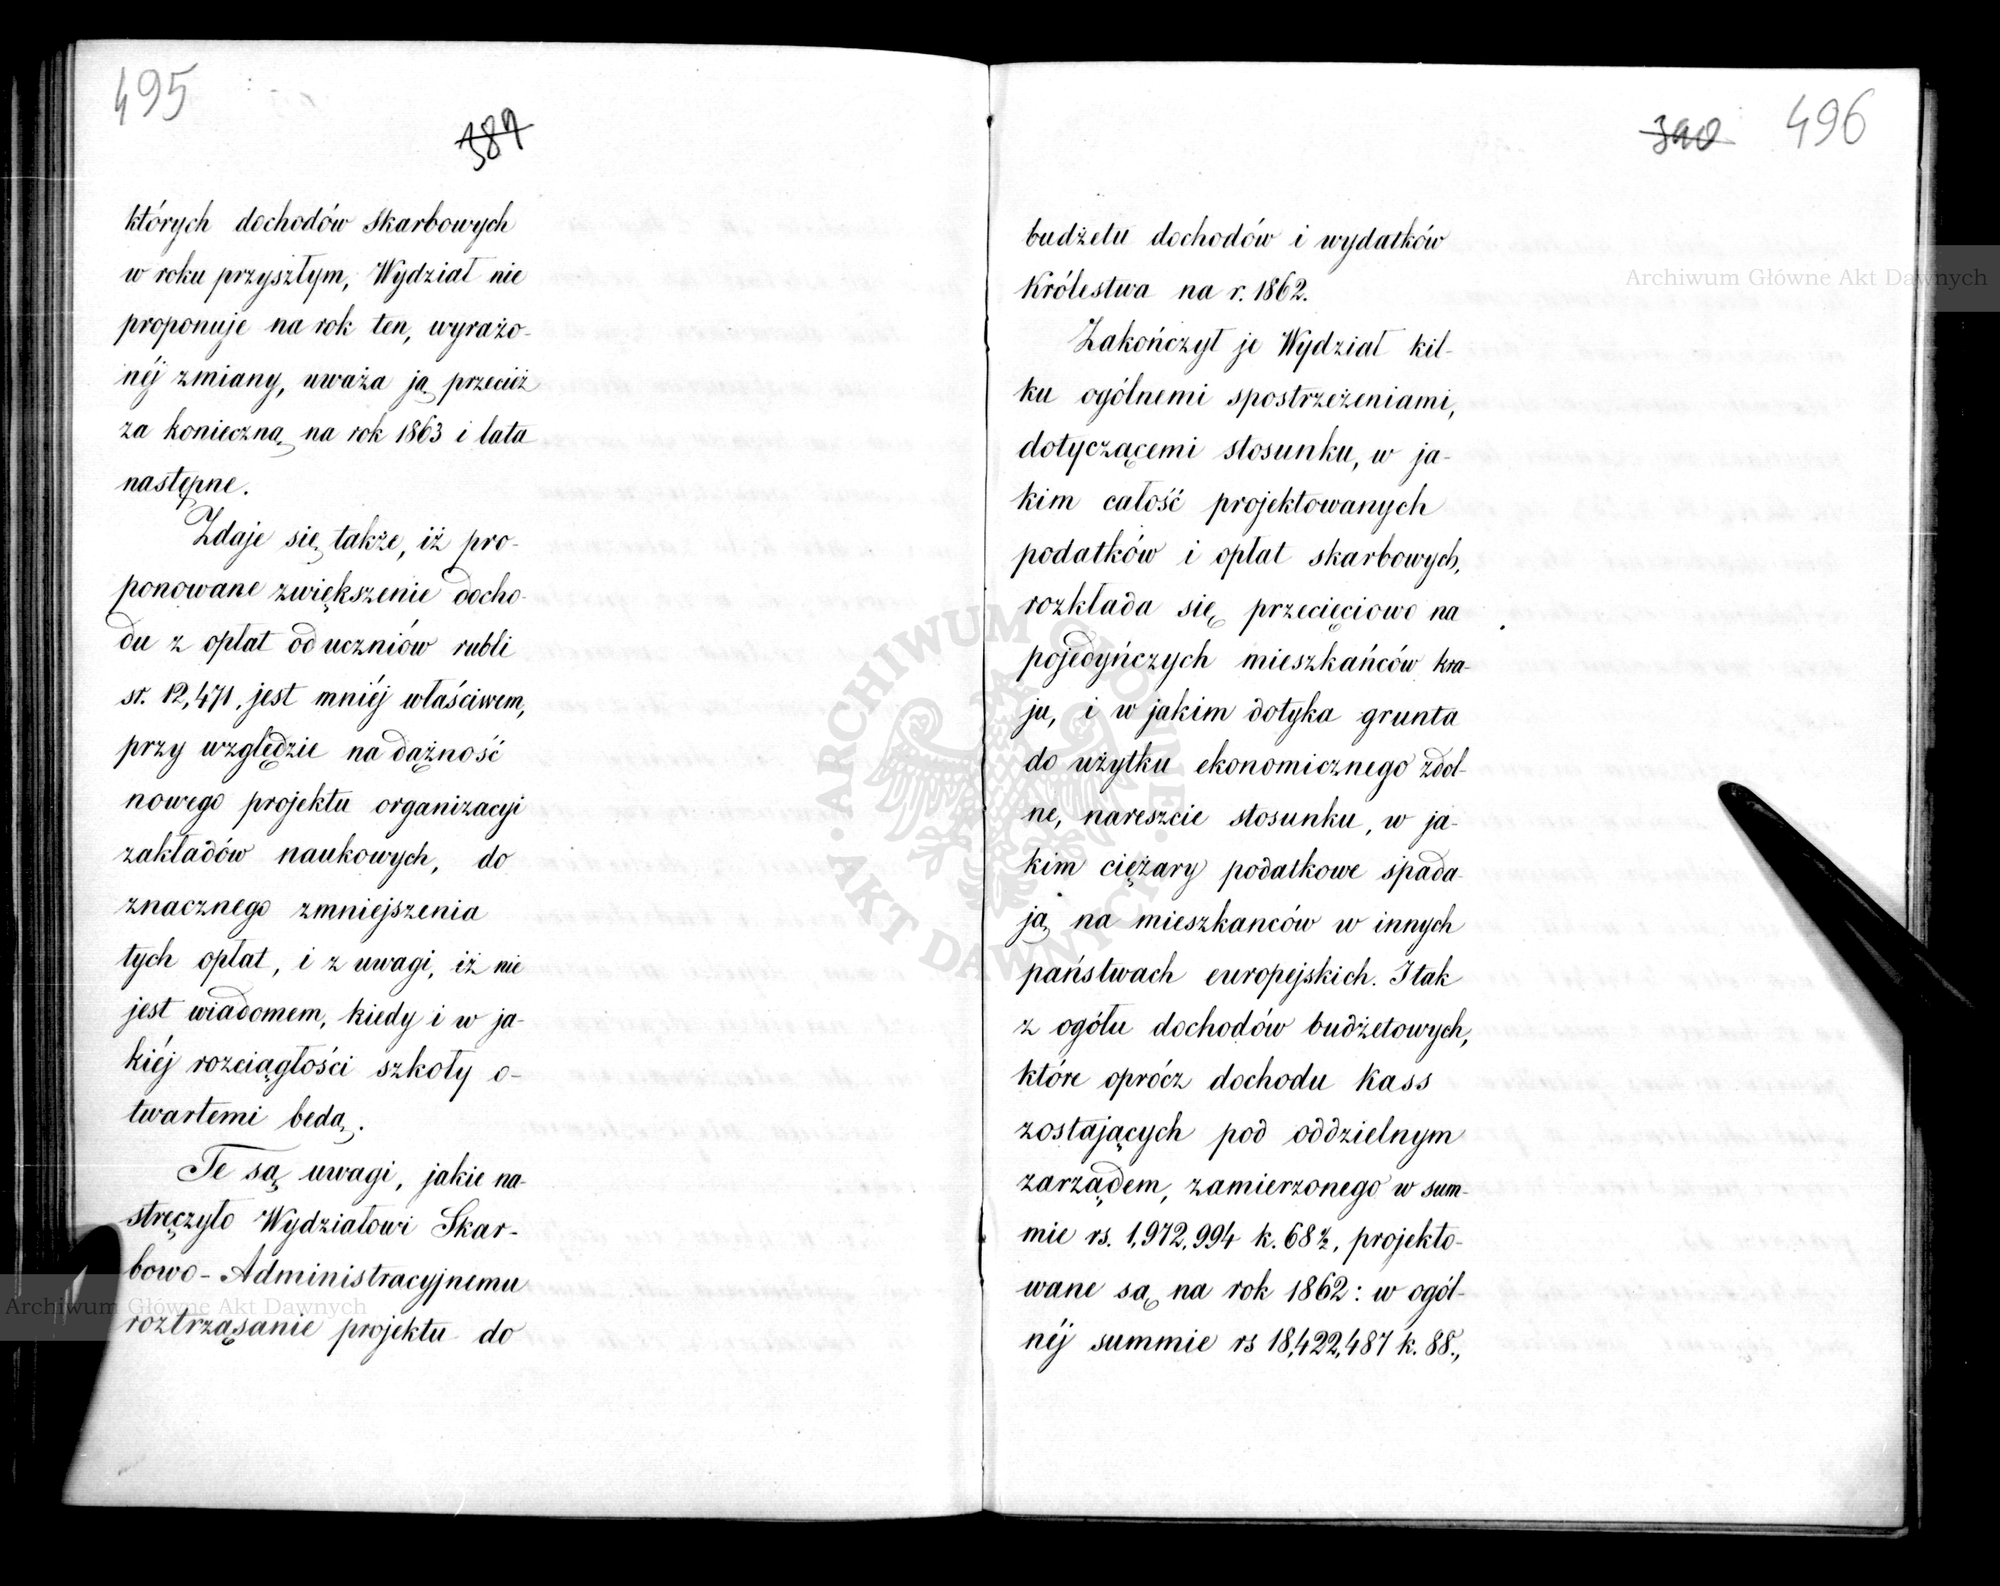 495
389
których dochodów Skarbowych
w roku przyszłym, Wydział nie
proponuje na rok ten, wyrażo-
néj zmiany, uważa ją przecież
za konieczną na rok 1863 i lata
następne.
Zdaje się także, iż pro-
ponowane zwiększenie docho-
du z opłat od uczniów rubli
sr. 12,471, jest mniéj właściwem,
przy względzie na dążność
nowego projektu organizacyi
zakładów naukowych, do
znacznego zmniejszenia
tych opłat, i z uwagi, iż nie
jest wiadomem, kiedy i w ja-
kiéj rozciągłości szkoły o-
twartemi będą.
Te są uwagi, jakie na-
stręczyło Wydziałowi Skar-
bowo-Administracyjnemu
roztrząsanie projektu do
390
496
budżetu dochodów i wydatków
Królestwa na r. 1862.
Zakończył je Wydział kil-
ku ogólnemi spostrzeżeniami,
dotyczącemi stosunku, w ja-
kim całość projektowanych
podatków i opłat skarbowych,
rozkłada się przecięciowo na
pojedyńczych mieszkańców kra-
ju, i w jakim dotyka grunta
do użytku ekonomicznego zdol-
ne, nareszcie stosunku, w ja-
kim ciężary podatkowe spada-
ją na mieszkanców w innych
państwach europejskich. I tak
z ogółu dochodów budżetowych,
które oprócz dochodu kass
zostających pod oddzielnym
zarządem, zamierzonego w sum-
mie rs. 1,972,994 k. 68½, projekto-
wane są na rok 1862: w ogól-
néj summie rs 18,422,487 k. 88.,
Archiwum Główne Akt Dawnych
Archiwum Główne Akt Dawnych
ARCHIWUM GŁÓWNE
AKT DAWNYCH